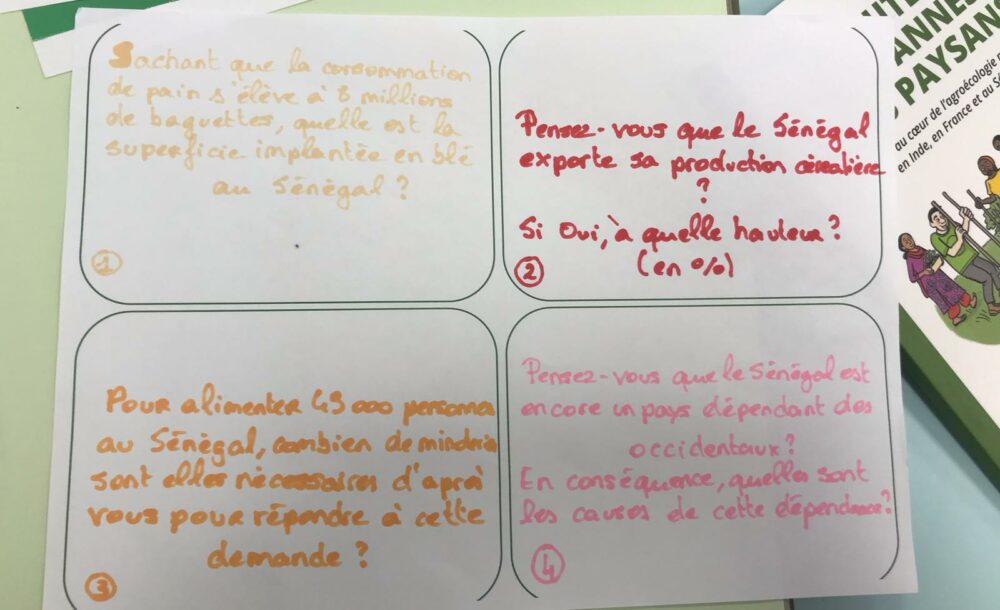 Sachant que la consommation
de pain s'élève à 8 millions
de baguettes, quelle est la
superficie implantée en blé
au Sénégal ?
1
Pensez-vous que le Sénégal
exporte sa production céréalière
?
Si Oui, à quelle hauteur ?
(en %)
2
Pour alimenter 49 000 personnes
au Sénégal, combien de
sont elles nécessaires d'après
vous pour répondre à cette
demande ?
3
Pensez-vous que le Sénégal est
encore un pays dépendant des
occidentaux ?
En conséquence, quelles sont
les causes de cette dépendance ?
4
ANNES
PAYSAN
au cœur de l'agroécologie
en Inde, en France et au Sé